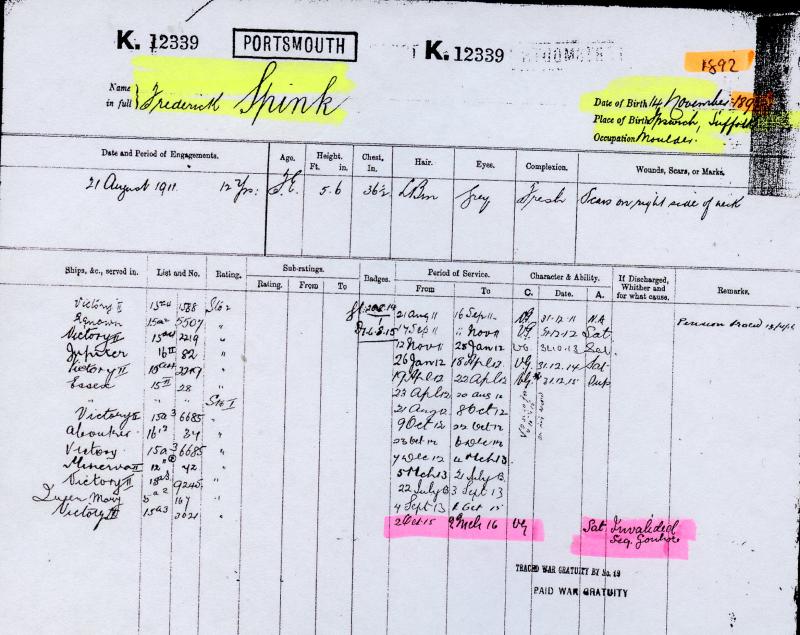 K. 12339 PORTSMOUTH K. 12339
1892
Name in full } Frederick Spink
Date of Birth 14 November
Place of Birth Ipswich, Suffolk
Occupation Moulder.
Date and Period of Engagements. Age. Height. Ft. in. Chest, In. Hair. Eyes. Complexion. Wounds, Scars, or Marks.
21 August 1911 12 Yrs: 5.6 36½ LBrn Grey Fresh Scars on right side of neck
Ships, &c., served in. List and No. Rating. Sub-ratings. Badges. Period of Service. Character & Ability. If Discharged, Whither and for what cause. Remarks.
Rating. From To From To C. Date. A.
Victory II 15a4 1588 Sto 2 21 Aug 11 16 Sep 11 VG 31.12.11 N.A
Renown 15a2 5507 " 17 Sep 11 11 Nov 11 VG 31.12.12 Sat
Victory II 15a4 2219 " 12 Nov 11 25 Jan 12 VG 31.12.13 Sat
Jupiter 16 II 82 " 26 Jan 12 18 Apl 12 VG 31.12.14 Sat
Victory II 2219 " 19 Apl 12 22 Apl 12 VG 31.12.15 Sup
Essex 15 II 28 " 23 Apl 12 20 Aug 12
" " " Sto I 21 Aug 12 8 Oct 12
Victory II 15a3 6685 " 9 Oct 12 22 Oct 12
Aboukir 16 34 " 23 Oct 12 6 Dec 12
Victory 15a3 6685 " 7 Dec 12 4 Mch 13
Minerva II 12 42 " 5 Mch 13 21 July 13
Victory II 9245 " 22 July 13 3 Sept 13
Queen Mary 5a2 167 " 4 Sept 13 1 Oct 15
Victory II 15a3 3021 " 2 Oct 15 Mch 16 VG Sat Invalided
TRACED WAR GRATUITY BY No. 19
PAID WAR GRATUITY